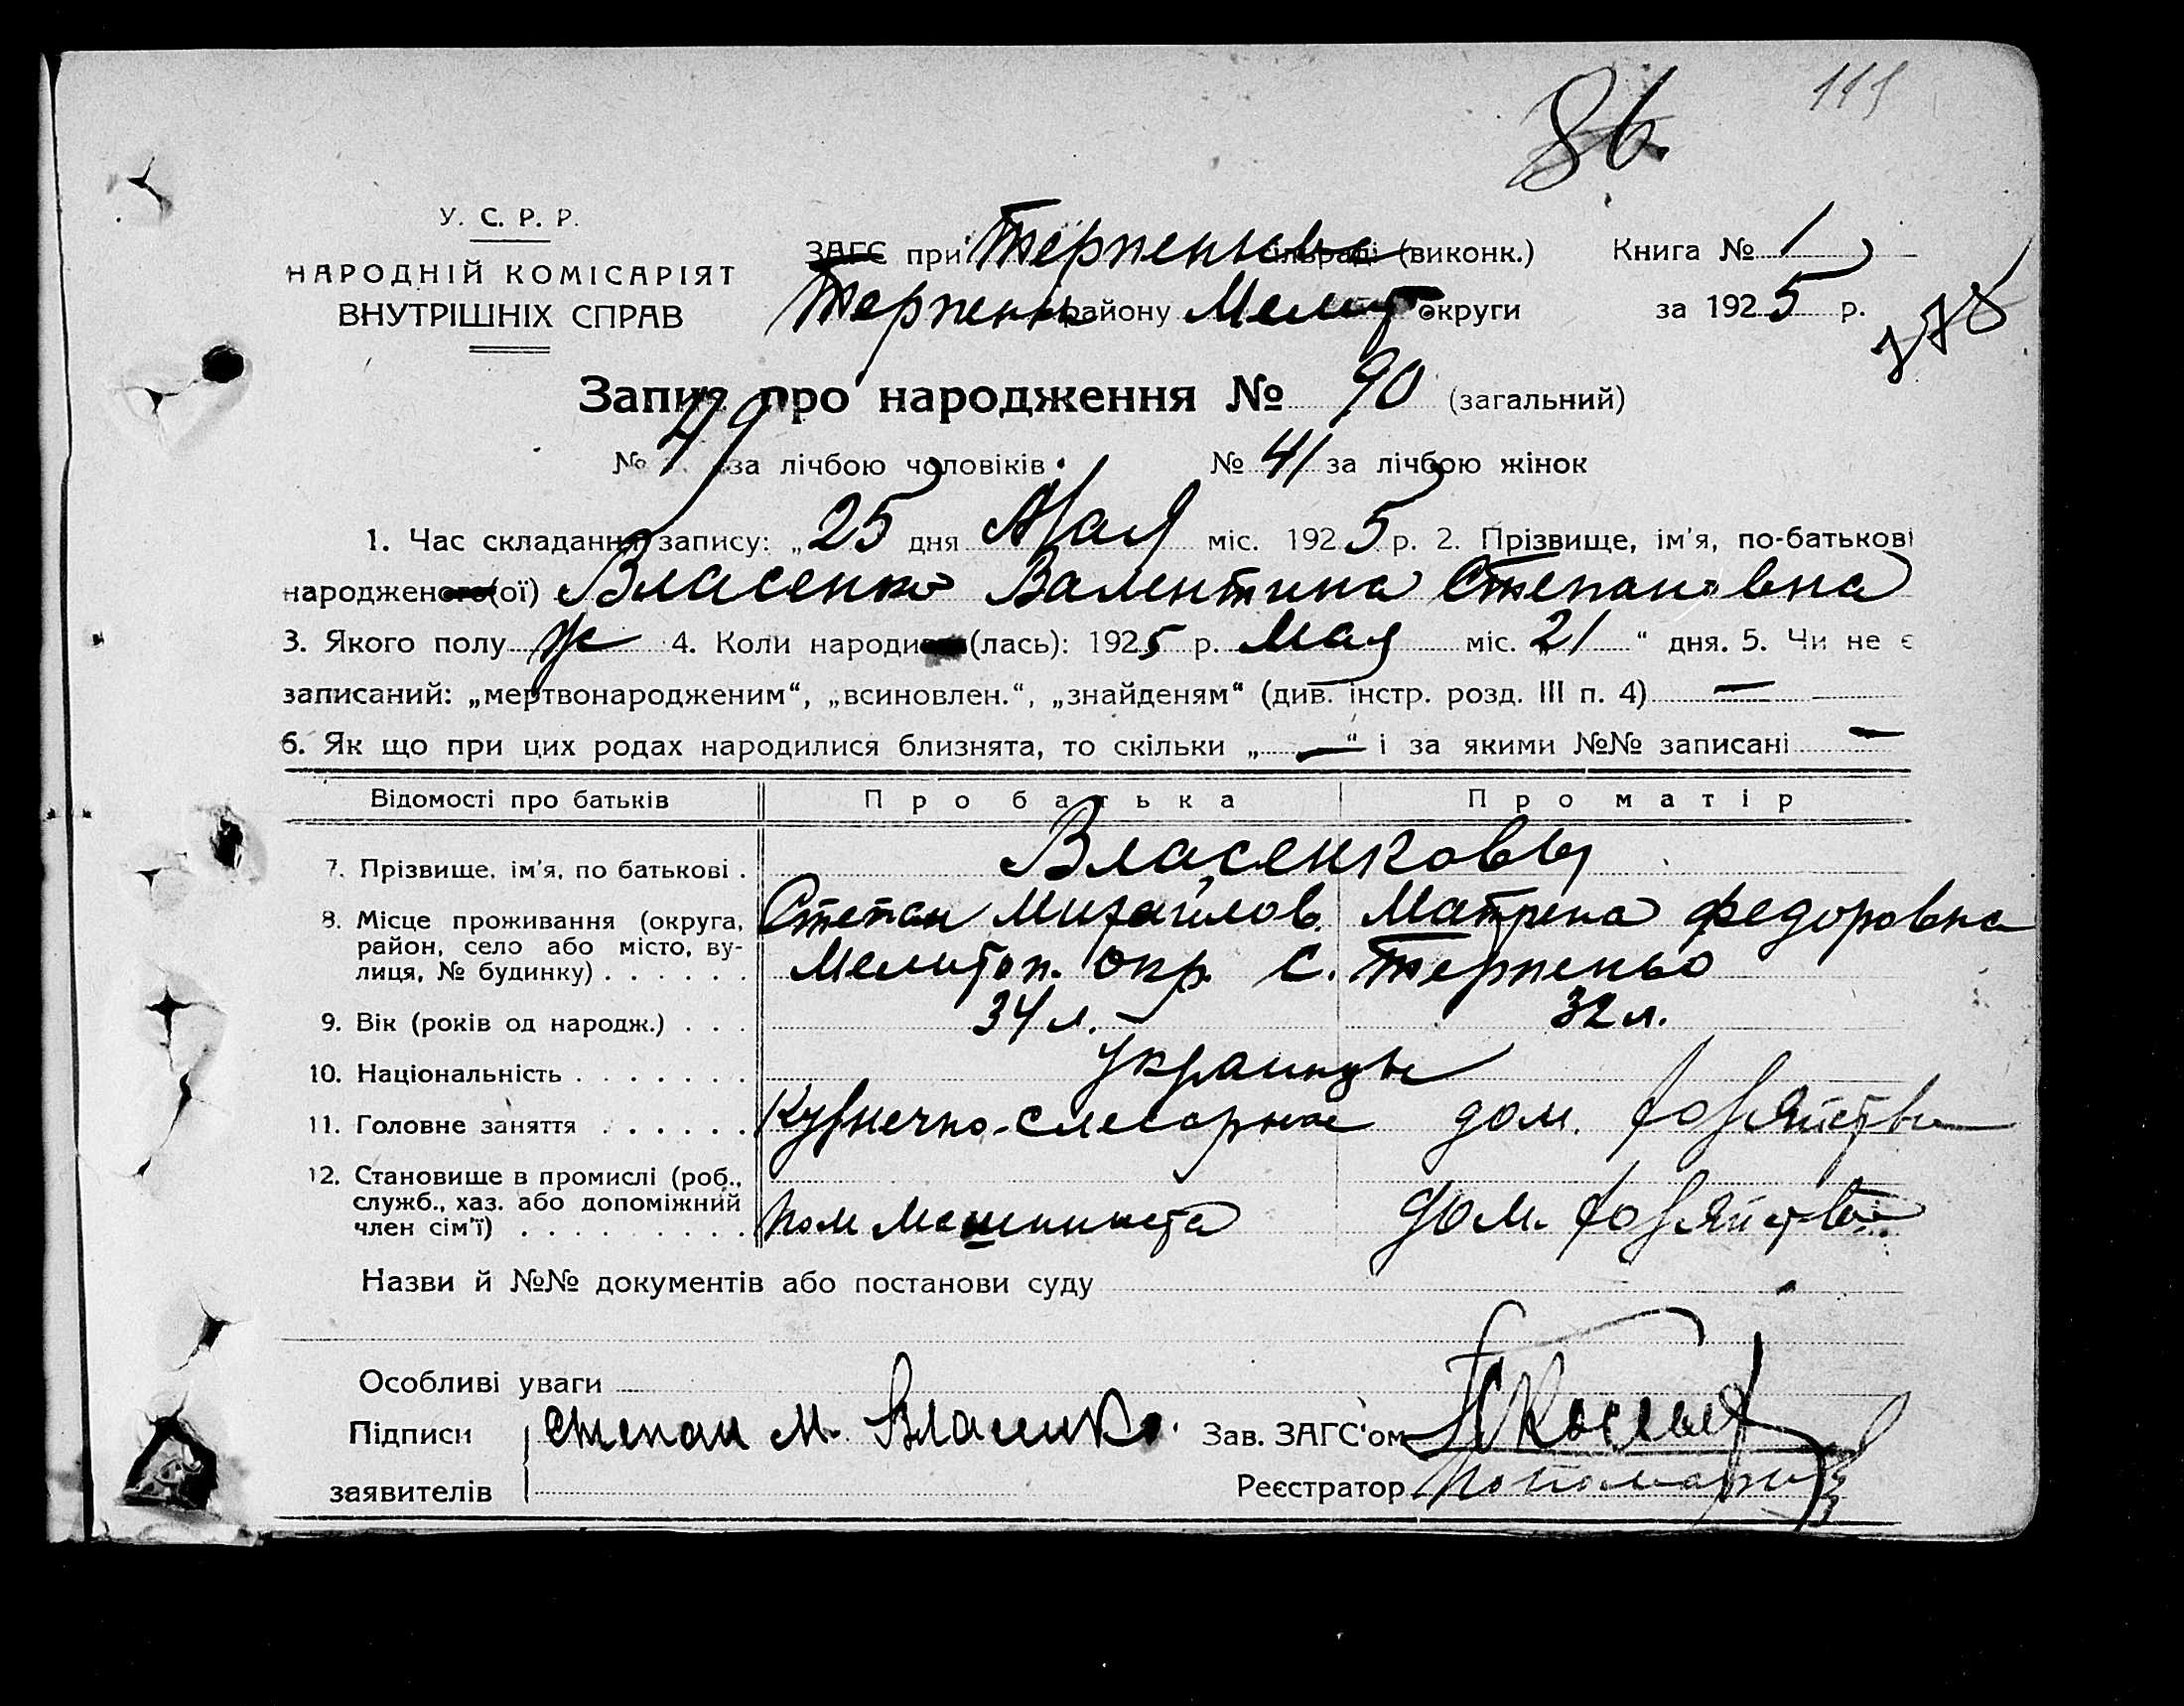 86.
У. С. Р. Р.
НАРОДНІЙ КОМІСАРІЯТ
ВНУТРІШНІХ СПРАВ
ЗАГС при сільраді (виконк.) Книга № 1
Терпень району Мелит округи за 1925 р.
Запис про народження № 90 (загальний)
№ 49 за лічбою чоловіків. № 41 за лічбою жінок
1. Час складання запису: „25 дня Мая міс. 1925 р. 2. Прізвище, ім'я, по-батькові
народженого(ої) Власенко Валентина Степановна
3. Якого полу ж 4. Коли народи (лась): 1925 р. Мая міс. „21 “ дня. 5. Чи не є
записаний: „мертвонародженим“, „всиновлен.“, „знайденям“ (див. інстр. розд. III п. 4) —
6. Як що при цих родах народилися близнята, то скільки „ — “ і за якими №№ записані —
Відомості про батьків Про батька Про матір
7. Прізвище, ім'я, по батькові . Власенковы
8. Місце проживання (округа, Степан Михайлов. Матрена Федоровна
район, село або місто, ву-
лиця, № будинку) . . . . . . Мелитоп. окр. с. Терпенье
9. Вік (років од народж.) . . . 34 л. 32 л.
10. Національність . . . . . . . украинцы
11. Головне заняття . . . . . . Кузнечно-слесарное дом. хозяйство
12. Становище в промислі (роб.,
служб., хаз. або допоміжний
член сім'ї) . . . . . . . . . пом машиниста дом. хозяйство
Назви й №№ документів або постанови суду
Особливі уваги
Підписи Степан М. Власенко. Зав. ЗАГС'ом
заявителів Реєстратор